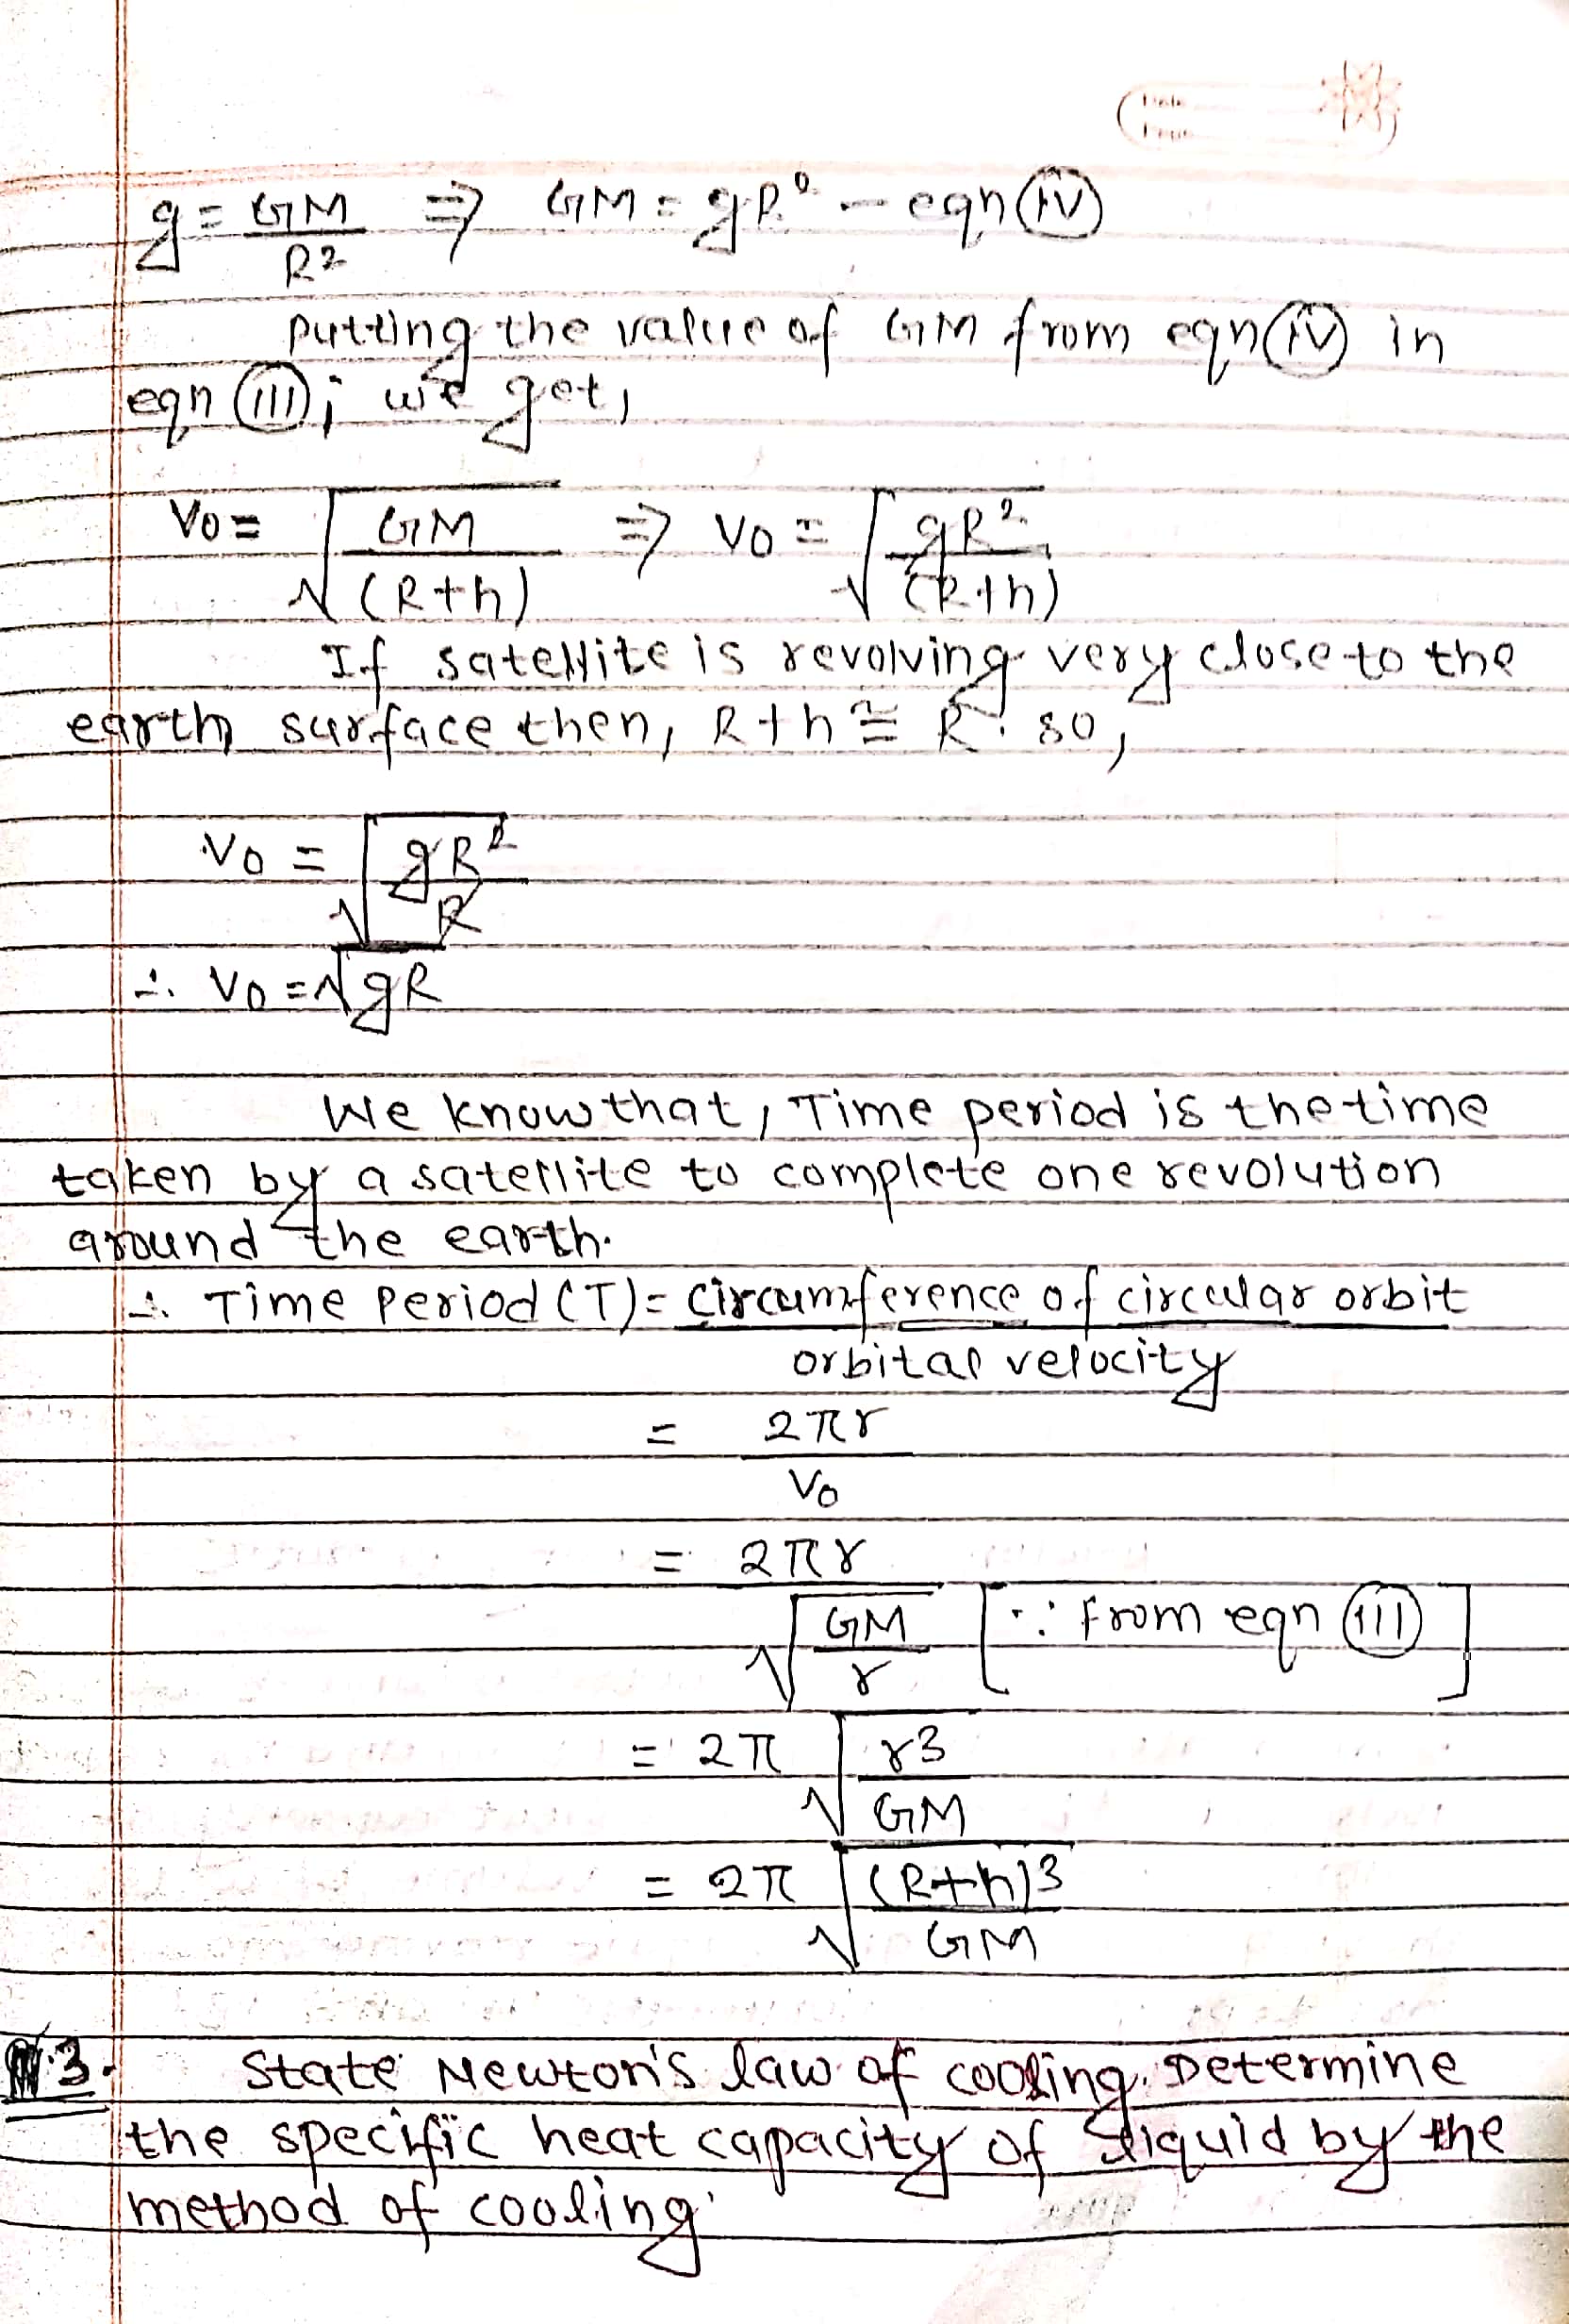 Date
Page
g = GM/R2 => GM = gR² - eqn (iv)
putting the value of GM from eqn (iv) in
eqn (iii); we get,
Vo = √(GM/(R+h)) => Vo = √(gR²/(R+h))
If satellite is revolving very close to the
earth surface then, R+h ≅ R. so,
Vo = √(gR²/R)
∴ Vo = √gR
We know that, Time period is the time
taken by a satellite to complete one revolution
around the earth.
∴ Time Period (T) = circumference of circular orbit
orbital velocity
= 2πr/Vo
= 2πr/√(GM/r) [∵ From eqn (iii)]
= 2π √(r3/GM)
= 2π √((R+h)3/GM)
3. State Newton's law of cooling. Determine
the specific heat capacity of liquid by the
method of cooling.